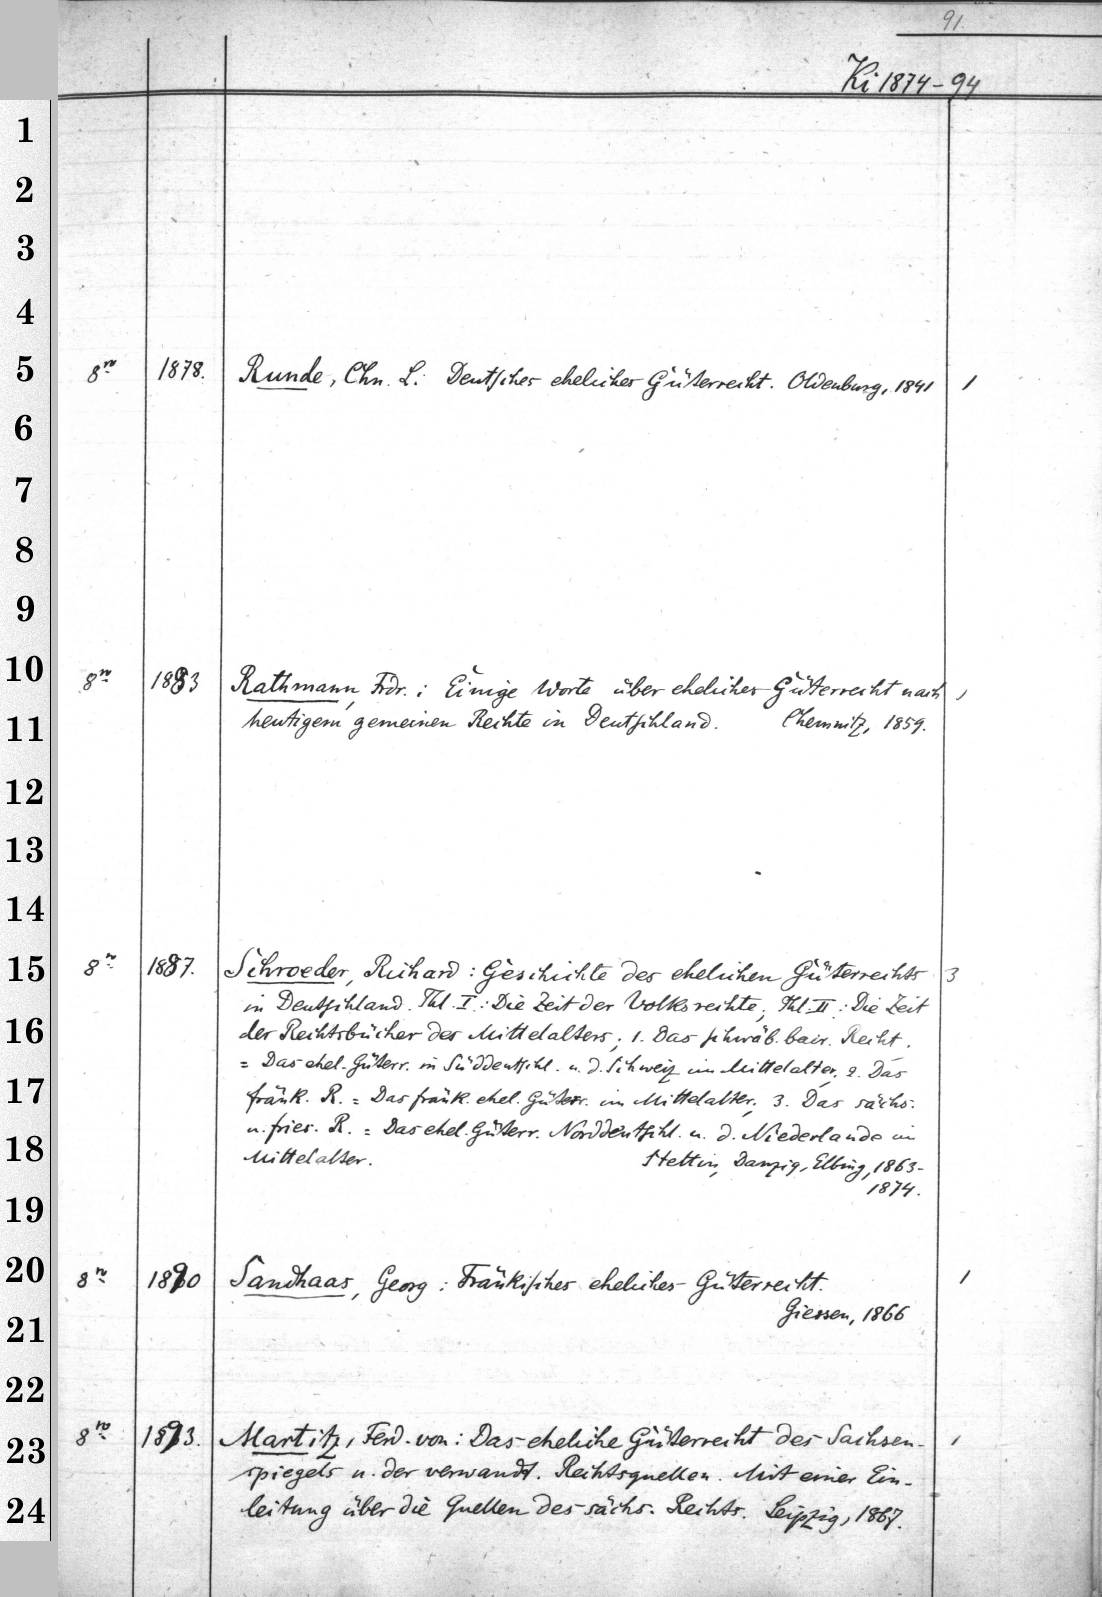 91.
Ki 1874-94
1
2
3
4
5 8º 1878. Runde, Chn. L.: Deutsches eheliches Güterrecht. Oldenburg, 1841 1
6
7
8
9
10 8º 1883 Rathmann, Frdr.: Einige Worte über eheliches Güterrecht nach 1
11 heutigem gemeinen Rechte in Deutschland. Chemnitz, 1859.
12
13
14
15 8º 1887. Schroeder, Richard: Geschichte des ehelichen Güterrechts 3
in Deutschland. Thl. I.: Die Zeit der Volksrechte; Thl. II.: Die Zeit
16 der Rechtsbücher des Mittelalters; 1. Das schwäb. bair. Recht.
= Das ehel. Güterr. in Süddeutschl. u. d. Schweiz im Mittelalter, 2. Das
17 fränk. R. = Das fränk. ehel. Güterr. im Mittelalter, 3. Das sächs.
u. fries. R. = Das ehel. Güterr. Norddeutschl. u. d. Niederlande im
18 Mittelalter. Stettin, Danzig, Elbing, 1863-
19 1874.
20 8º 1890 Sandhaas, Georg: Fränkisches eheliches Güterrecht. 1
21 Giessen, 1866
22
23 8º 1893. Martitz, Ferd. von: Das eheliche Güterrecht des Sachsen- 1
spiegels u. der verwandt. Rechtsquellen. Mit einer Ein-
24 leitung über die Quellen des sächs. Rechts. Leipzig, 1867.